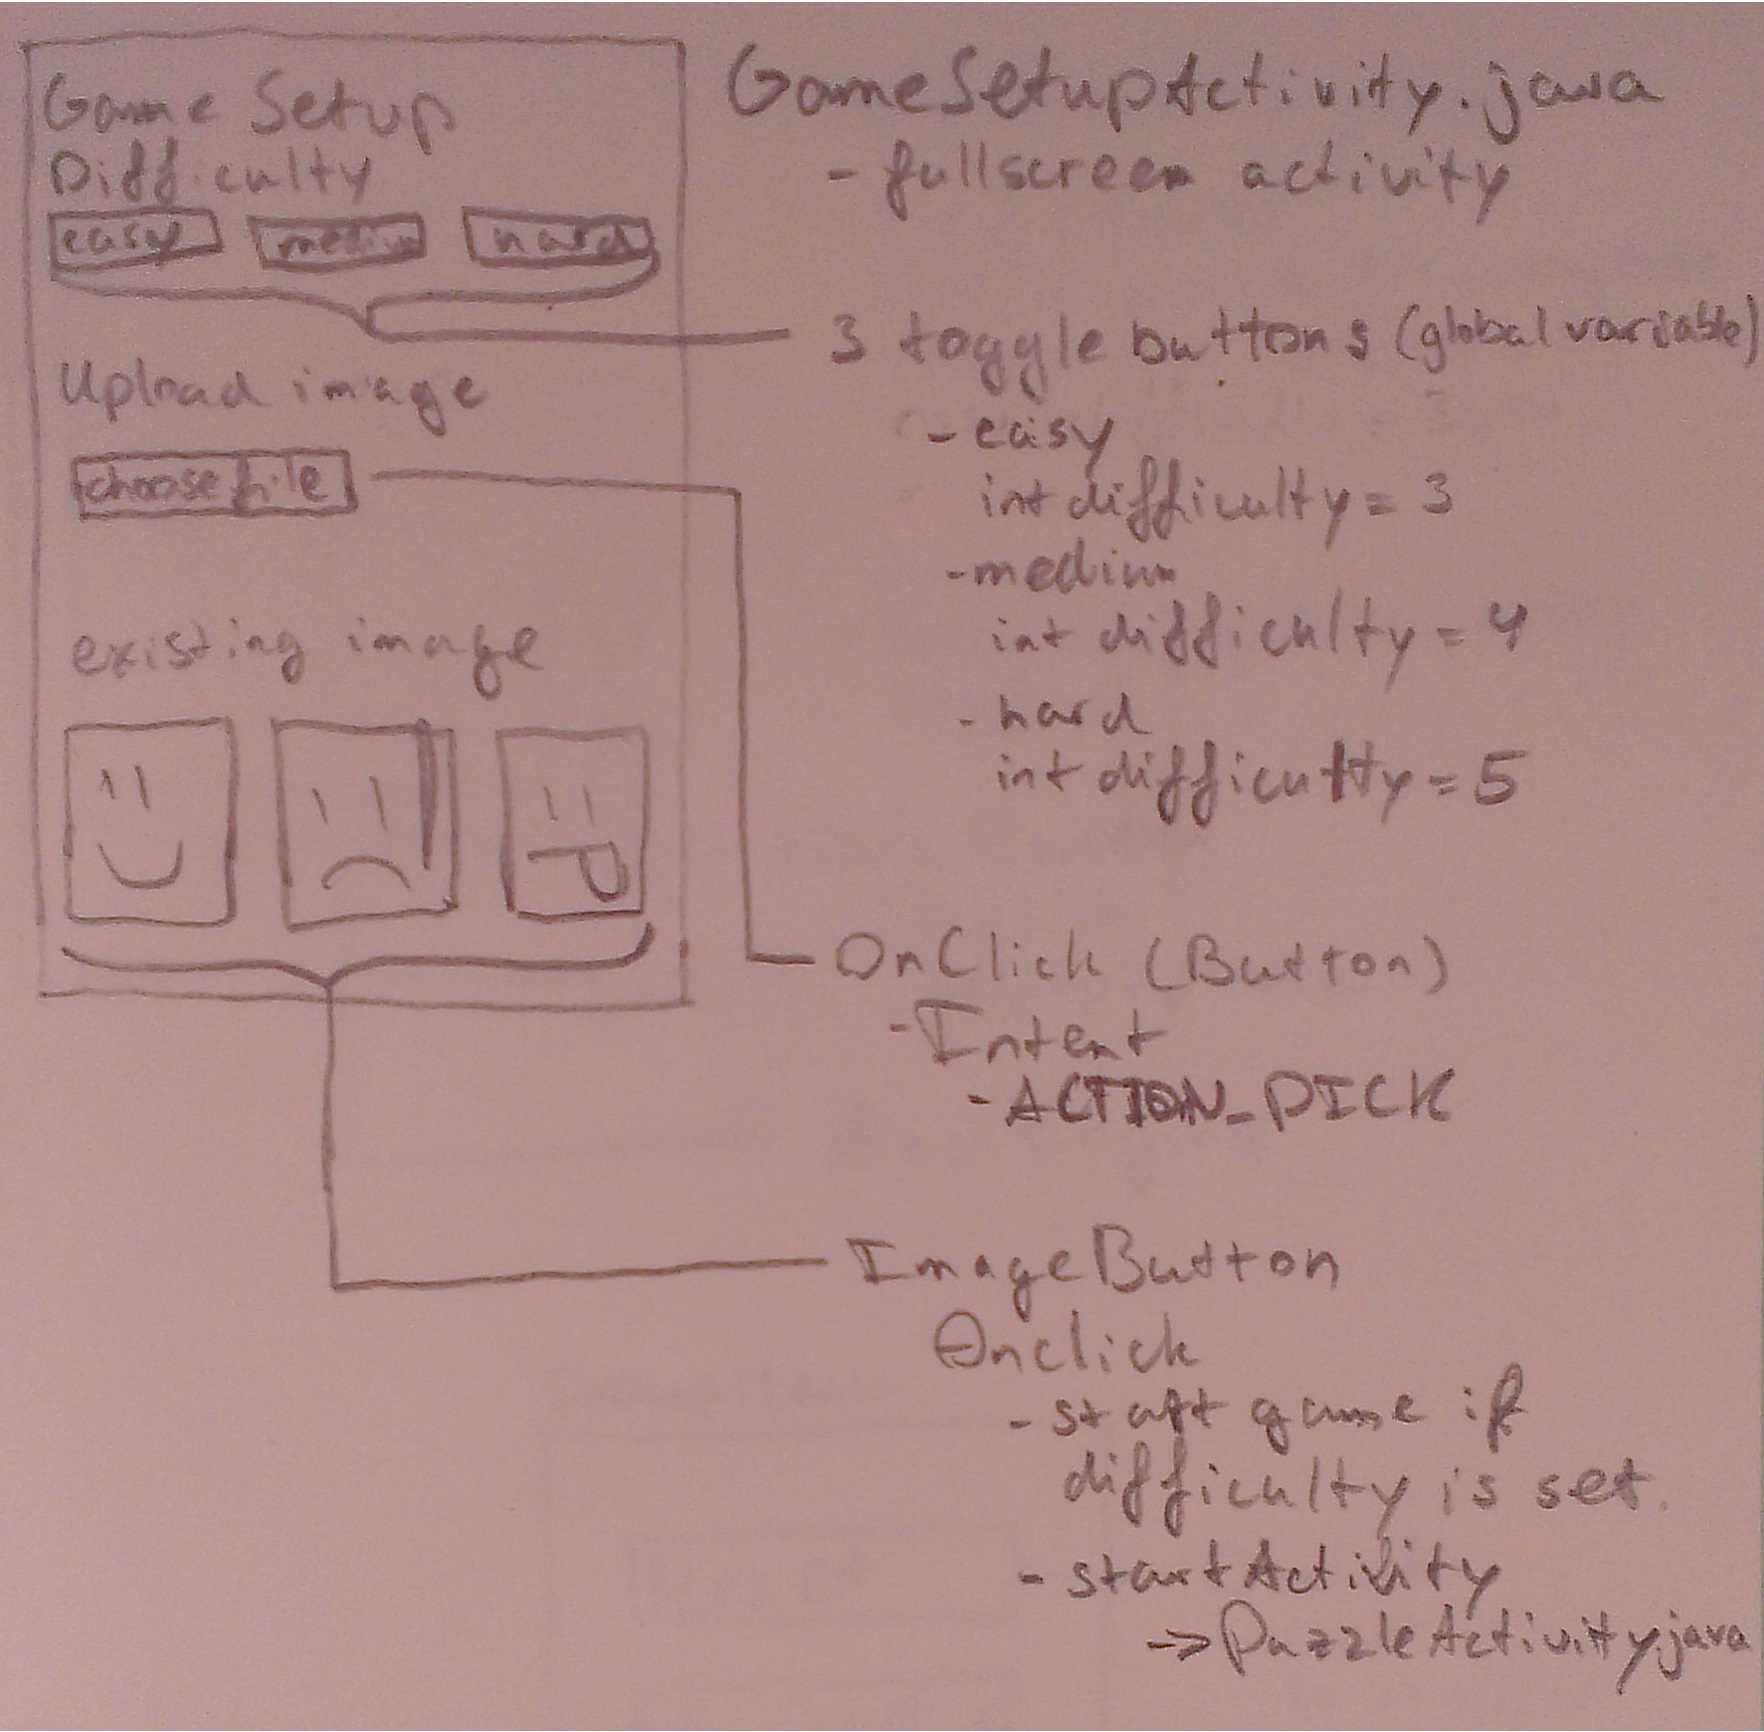 Game Setup
Difficulty
easy medium hard
Upload image
choose file
existing image
GameSetupActivity.java
- fullscreen activity
3 toggle buttons (global variable)
- easy
int difficulty = 3
- medium
int difficulty = 4
- hard
int difficulty = 5
OnClick (Button)
- Intent
- ACTION_PICK
ImageButton
Onclick
- start game if
difficulty is set.
- startActivity
-> PuzzleActivity.java